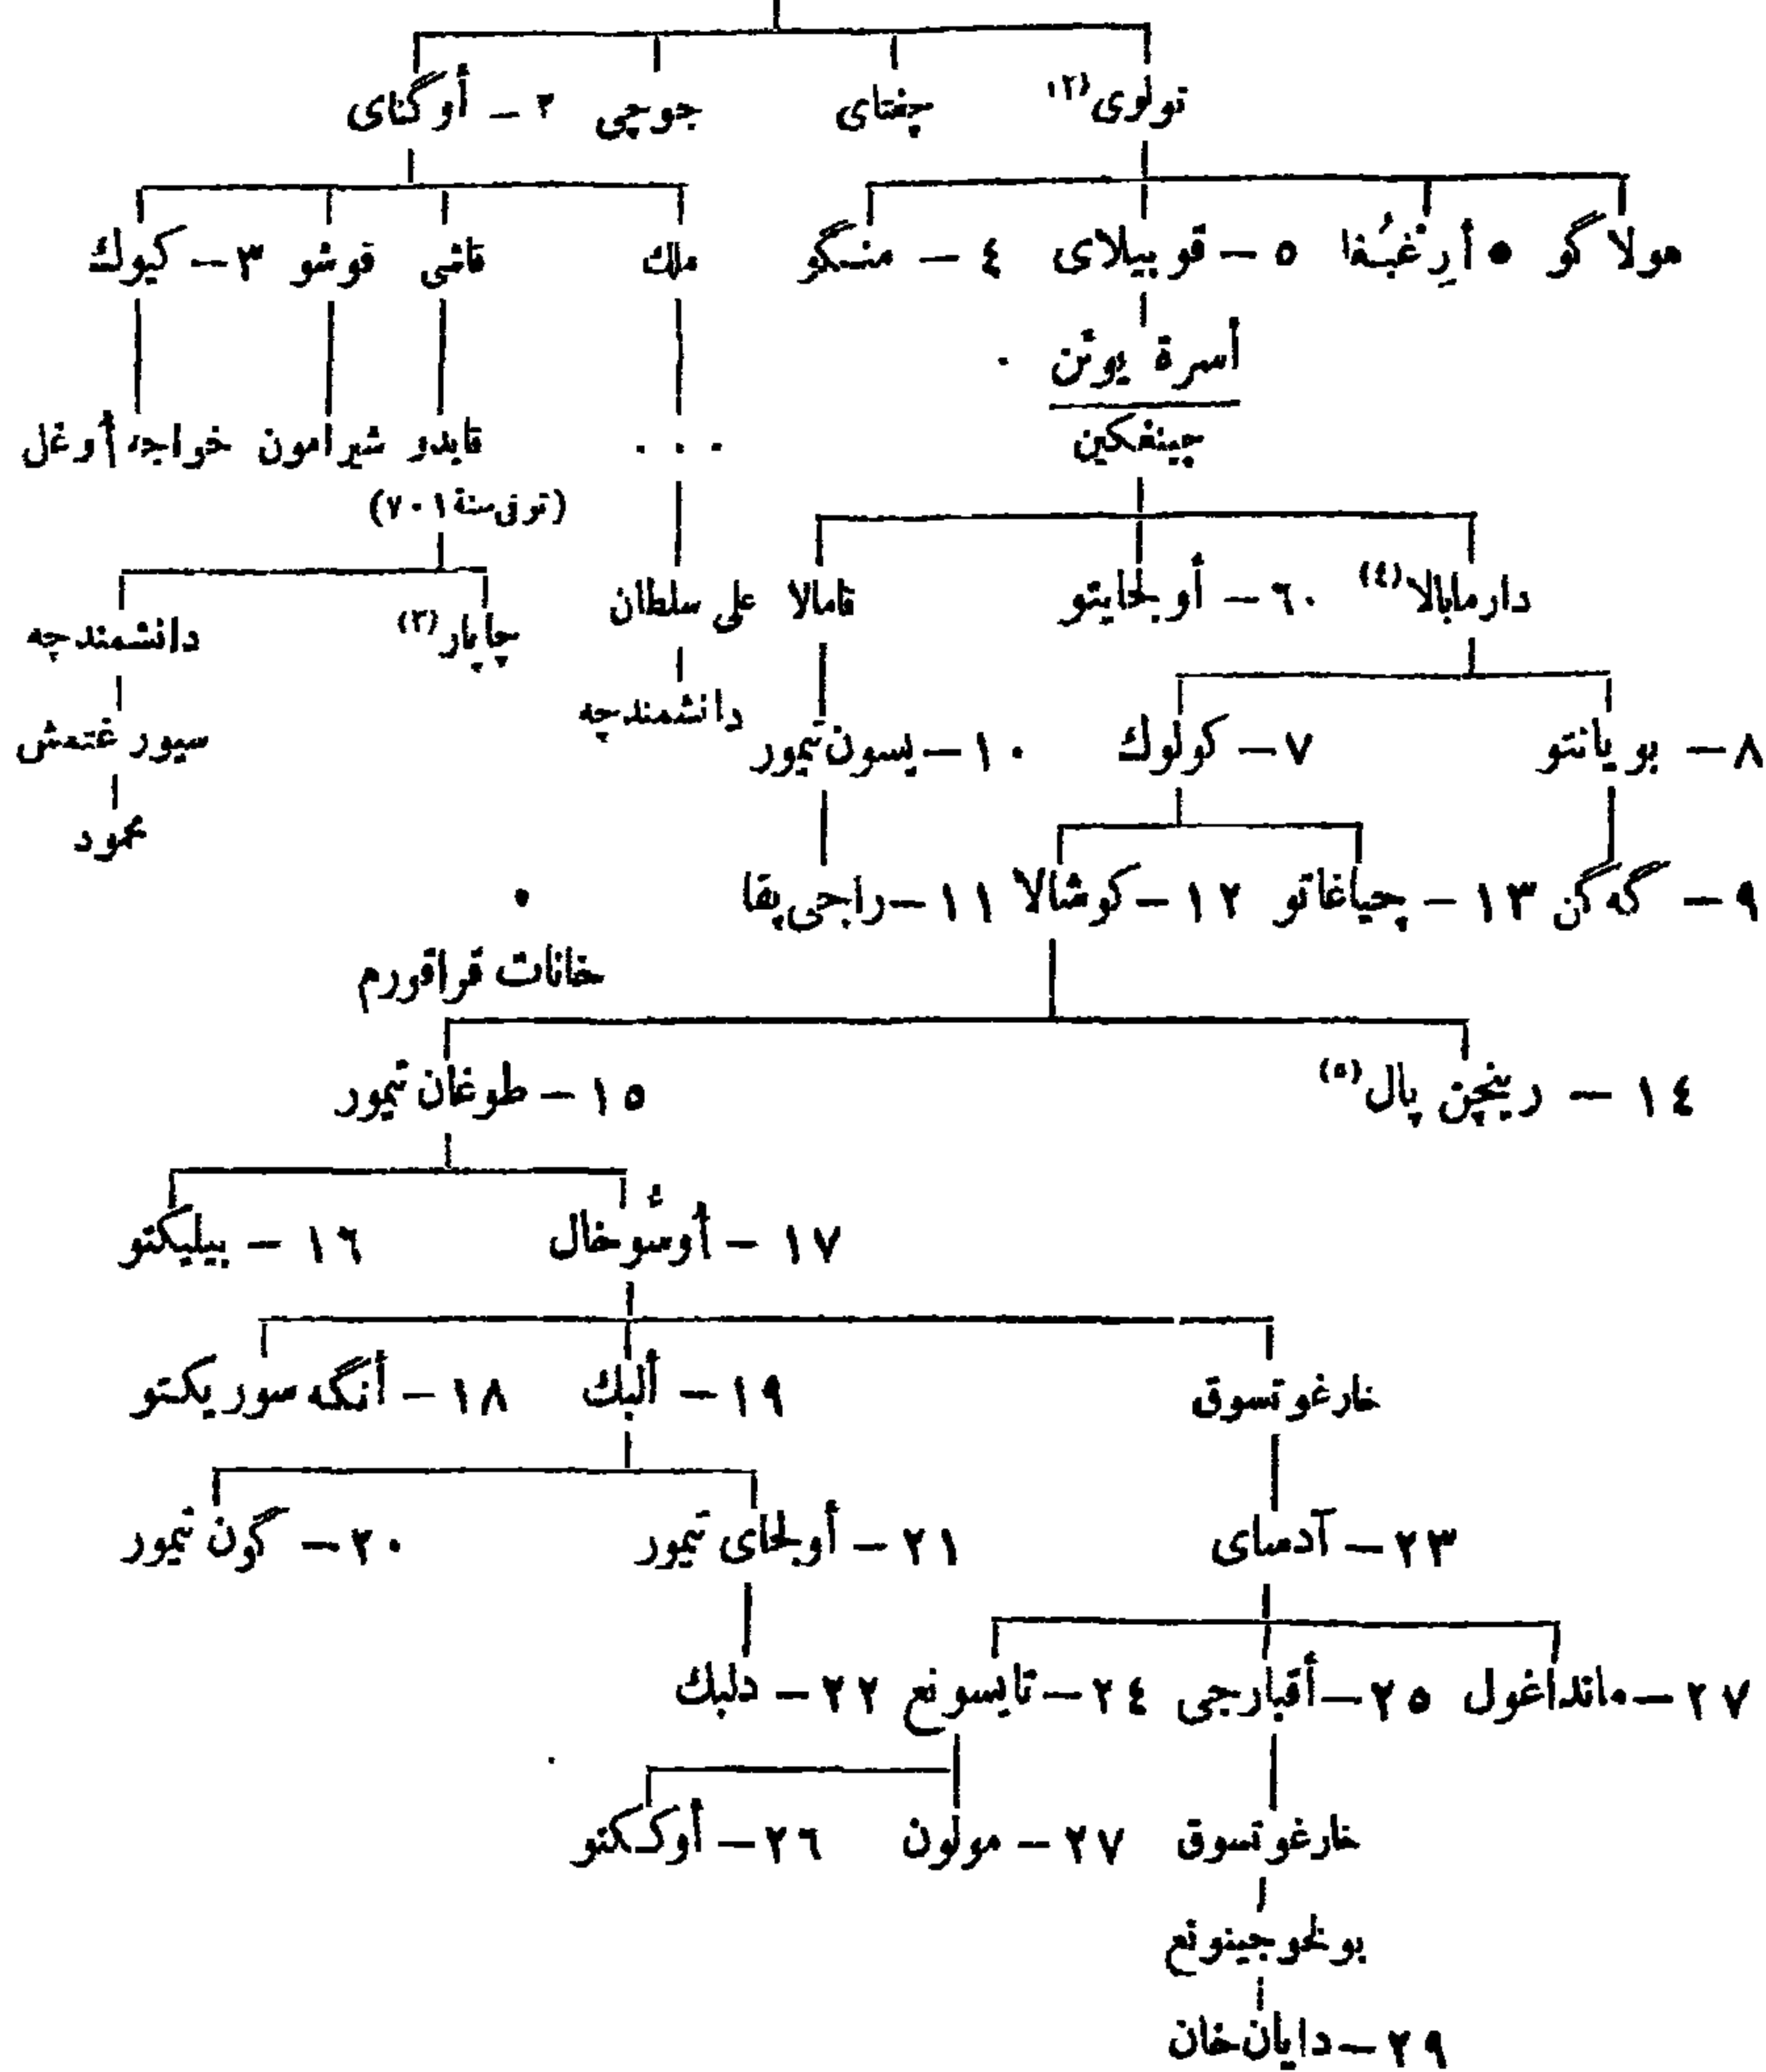 تولوی (٢) چغتای جوچی ٢ – أوگتای
هولاگو ٥ أرِغْبُغا ٥ – قوبيلای ٤ – منگو ملك قاشی قوشو ٣ – كيوك
أسرة يوئن
چينغكين
. . . قايدو شيرامون خواجه أوغل
(توفی سنة ٧٠١)
دارمابالا (٤) ٦ – أولجايتو قامالا علی سلطان چاپار (٣) دانشمندچه
دانشمندچه
٨ – بويانتو ٧ – كولوك ١٠ – يسون تيمور سيورغتمش
محمود
٩ – گەگن ١٣ – چياغاتو ١٢ – كوشالا ١١ – راجی بقا
خانات قراقورم
١٤ – رينچن پال (٥) ١٥ – طوغان تيمور
١٧ – أوسُوخال ١٦ – بيليكتو
خارغوتسوق ١٩ – ألبك ١٨ – أنگه سوريكتو
٢٣ – آدسای ٢١ – أولجای تيمور ٢٠ – گون تيمور
٢٧ – مانداغول ٢٥ – أقبارجی ٢٤ – تايسونغ ٢٢ – دلبك
خارغوتسوق ٢٧ – مولون ٢٦ – أوككتو
بولخوجينونغ
٢٩ – دايان خان